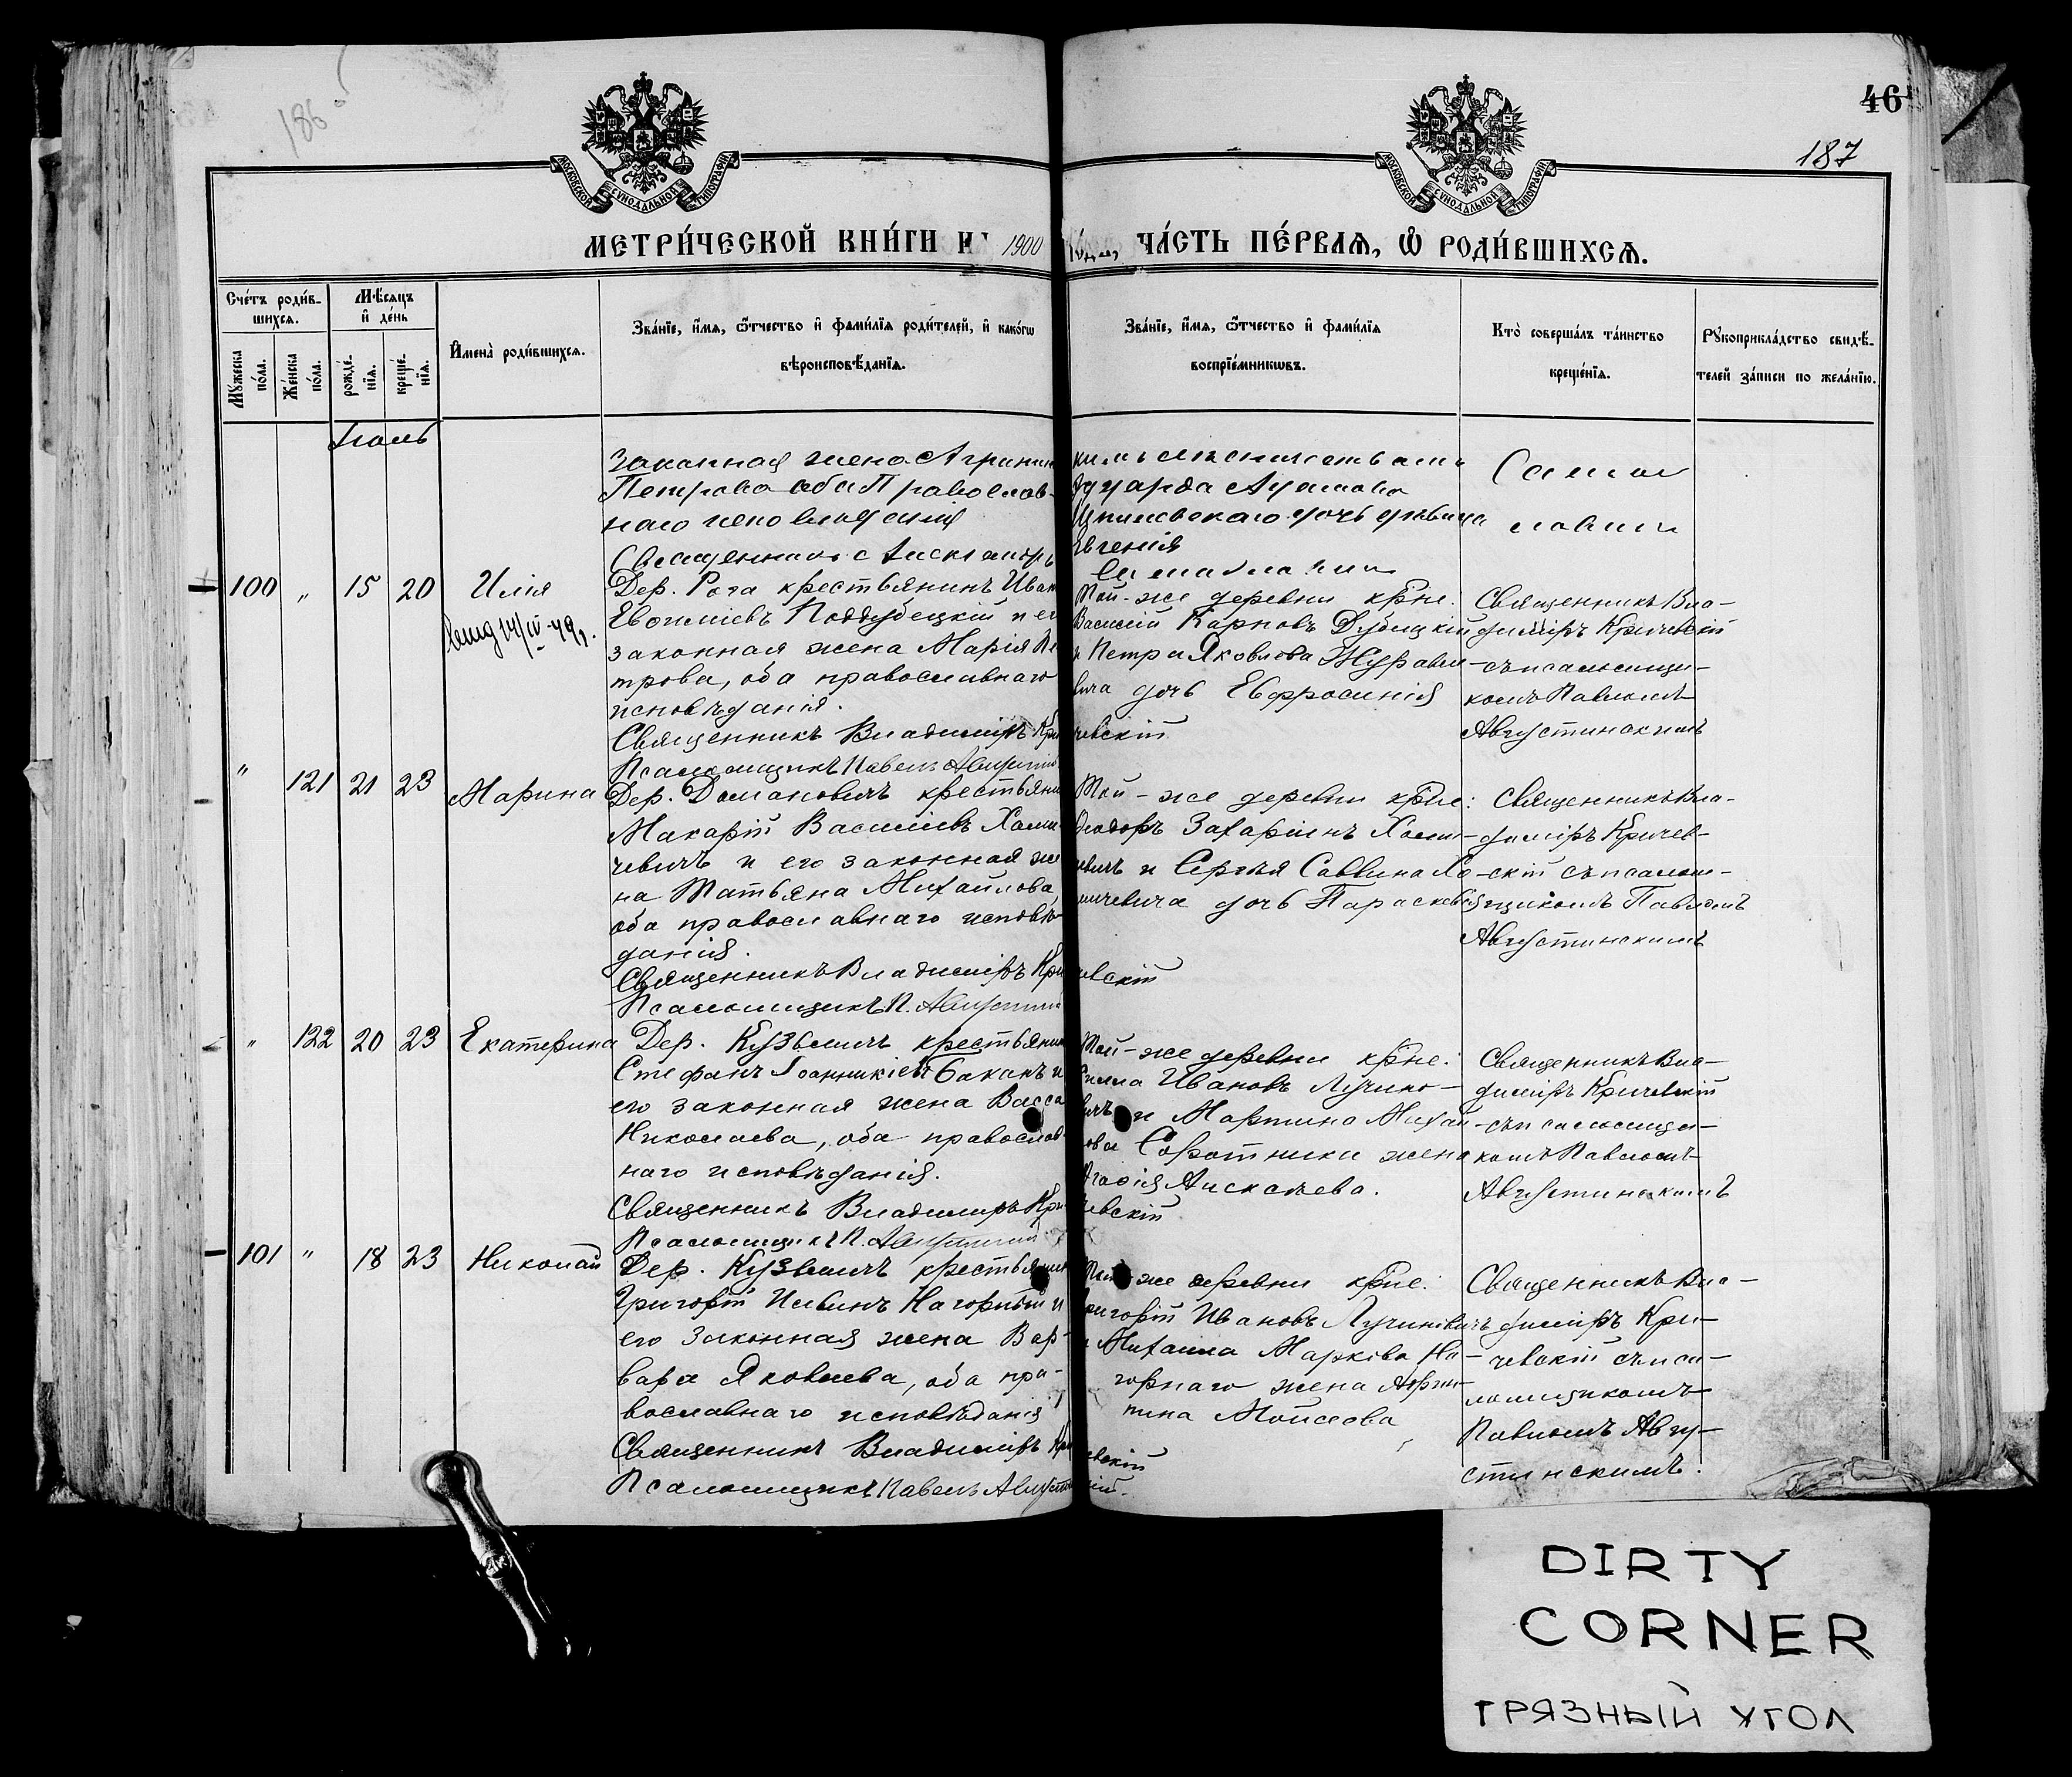 186
46
187
МОСКОВСКОЙ СУНОДАЛЬНОЙ ТИПОГРАФІИ
МОСКОВСКОЙ СУНОДАЛЬНОЙ ТИПОГРАФІИ
МЕТРИ́ЧЕСКОЙ КНИ́ГИ 1900 ЧА́СТЬ ПЕ́РВАѦ, Ѡ РОДИ́ВШИХСѦ.
Сче́тъ роди́в-
шихсѧ.
Мꙋ́жеска
по́ла.
Же́нска
по́ла.
Мѣ́сѧцъ
и҆ де́нь
рожде́-
нїѧ.
креще́-
нїѧ.
И҆мена̀ роди́вшихсѧ.
Зва́нїе, и҆́мѧ, ѻ҆́тчество и҆ фами́лїѧ роди́телей, и҆ како́гѡ
вѣроисповѣ́данїѧ.
Зва́нїе, и҆́мѧ, ѻ҆́тчество и҆ фами́лїѧ
воспрїе́мникѡвъ.
Кто̀ соверша́лъ та́инство
креще́нїѧ.
Рꙋкоприкла́дство свидѣ́-
телей за́писи по жела́нїю.
законная жена
Петрова оба Православ-
наго исповѣданія
дочь дѣвица
Евгенія
100 " 15 20 Илія
Дер. Рога крестьянинъ Иван
Евѳиміевъ Поддубецкій и ег
законная жена Марія Пе
трова, оба православнаго
исповѣданія.
Священникъ Владиміръ Кри
Псаломщикъ Павелъ
Той-же деревни крне:
Василій Карповъ Дубицкій
и Петра Яковлева Журавле-
вича дочь Евфросинія
чевскій
Священникъ Вла-
диміръ Кричевскій
съ псаломщи-
комъ Павломъ
Августинскимъ
" 121 21 23 Марина
Дер. Домановичъ крестьяни
Макарій Василіевъ Хоми-
чевичъ и его законная же
на Татьяна Михайлова,
оба православнаго исповѣ-
данія.
Священникъ Владиміръ Кри
Псаломщикъ П.
Той-же деревни крне:
Ѳеодоръ Захаріинъ Хоми-
чевичъ и Сергѣя Саввина Хо-
мичевича дочь Параскева
чевскій
Священникъ Вла-
диміръ Кричев-
скій съ псалом-
щикомъ Павломъ
Августинскимъ
" 122 20 23 Екатерина
Дер. Кузьмичъ крестьянин
Стефанъ Іоанникіевъ Баканъ и
его законная жена Васса
Николаева, оба православ-
наго исповѣданія.
Священникъ Владиміръ Кри
Псаломщикъ П.
Той-же деревни крне:
Ивановъ Лучино-
вичъ и Мартина Михай
лова Соротники жена
Агафія Алексѣева.
чевскій
Священникъ Вла-
диміръ Кричевскій
съ псаломщи-
комъ Павломъ
Августинскимъ
101 " 18 23 Николай
Дер. Кузьмичъ крестьянин
Григорій Нагорный и
его законная жена Вар-
вара Яковлева, оба пра-
вославнаго исповѣданія
Священникъ Владиміръ Кри
Псаломщикъ Павелъ Августин
Той же деревни крне:
Григорій Ивановъ Лучиновичъ
и Михаила Маркова На-
горнаго жена Агрип-
пина Моисеева
чевскій
скій.
Священникъ Вла-
диміръ Кри-
чевскій съ пса-
ломщикомъ
Павломъ Авгу-
стинскимъ.
DIRTY
CORNER
ГРЯЗНЫЙ УГОЛ